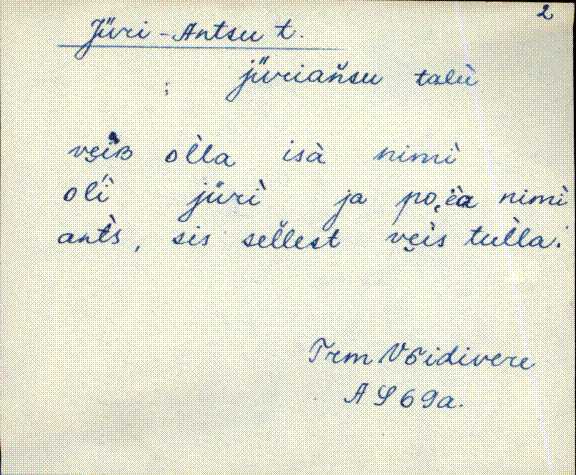 2
Jüri-Antsu t.
jüriańsu talù
vęiʙ òlla isà nimì
olì jürì ja poęa nimì
ańts, sis sellest vęis tulla.
Trm Võidivere
AS 69a.